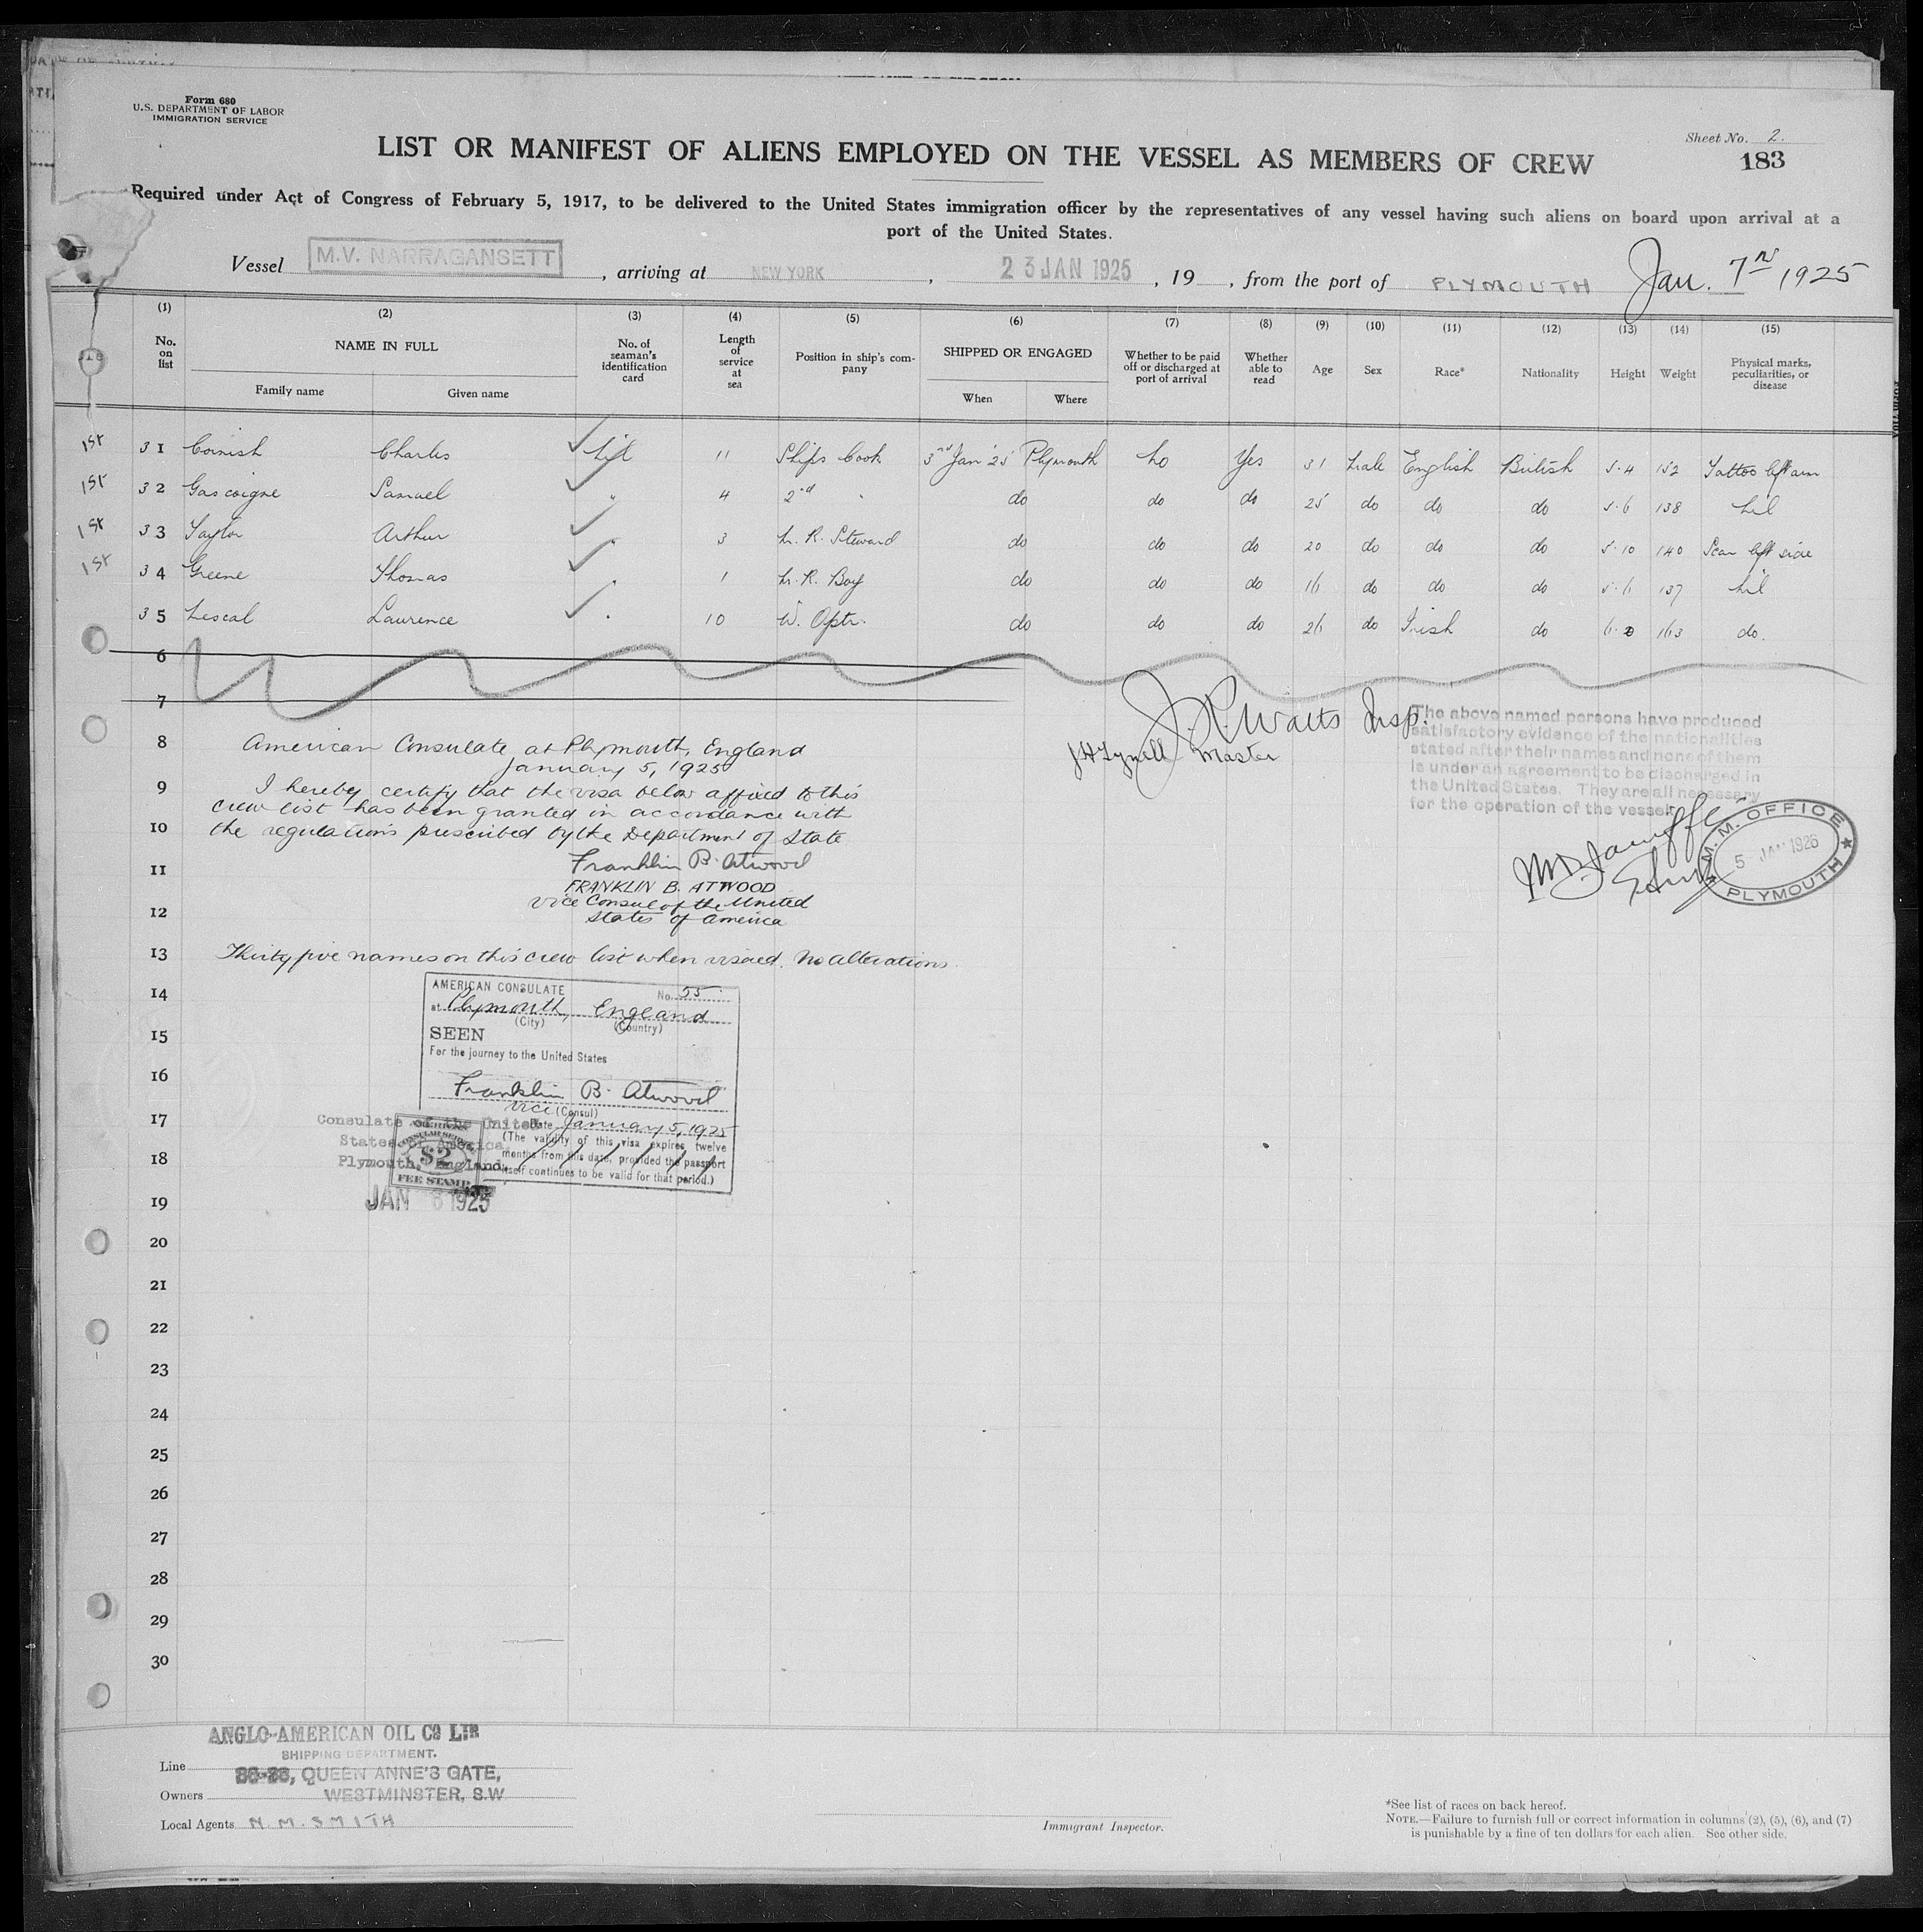 Form 680
U.S. DEPARTMENT OF LABOR
IMMIGRATION SERVICE
Sheet No. 2.
LIST OR MANIFEST OF ALIENS EMPLOYED ON THE VESSEL AS MEMBERS OF CREW
183
Required under Act of Congress of February 5, 1917, to be delivered to the United States immigration officer by the representatives of any vessel having such aliens on board upon arrival at a
port of the United States.
Vessel M.V. NARRAGANSETT, arriving at NEW YORK, 23 JAN 1925, 19 , from the port of PLYMOUTH Jan. 7th 1925
(1) (2) (3) (4) (5) (6) (7) (8) (9) (10) (11) (12) (13) (14) (15)
No. on list NAME IN FULL No. of seaman's identification card Length of service at sea Position in ship's company SHIPPED OR ENGAGED Whether to be paid off or discharged at port of arrival Whether able to read Age Sex Race* Nationality Height Weight Physical marks, peculiarities, or disease
Family name Given name When Where
1st 31 Cornish Charles Nil 11 Ships Cook 3rd Jan '25 Plymouth No Yes 31 Male English British 5.4 152 Tattoo left arm
1st 32 Gascoigne Samuel " 4 2nd " do do do 25 do do do 5.6 138 Nil
1st 33 Taylor Arthur " 3 M. R. Steward do do do 20 do do do 5.10 140 Scar left side
1st 34 Greene Thomas " 1 M. R. Boy do do do 16 do do do 5.6 137 Nil
35 Laurence " 10 W. Optr. do do do 26 do Irish do 6.0 163 do.
6
7
J. R. Watts Insp.
8 American Consulate at Plymouth, England
January 5, 1925
Master
The above named persons have produced
satisfactory evidence of the nationalities
stated after their names and none of them
is under an agreement to be discharged in
the United States. They are all necessary
for the operation of the vessel.
9 I hereby certify that the visa below affixed to this
crew list has been granted in accordance with
10 the regulations prescribed by the Department of State
M.M. OFFICE
5 - JAN 1926
PLYMOUTH
11 Franklin B. Atwood
FRANKLIN B. ATWOOD
Vice Consul of the United
12 States of America
13 Thirty five names on this crew list when visaed. No alterations.
14 AMERICAN CONSULATE No. 55
at Plymouth, England
(City) (Country)
15 SEEN
For the journey to the United States
16 Franklin B. Atwood
vice (Consul)
17 Date January 5, 1925
(The validity of this visa expires twelve
months from this date, provided the passport
itself continues to be valid for that period.)
Consulate of the United
States of America
18 Plymouth, England.
AMERICAN
CONSULAR SERVICE
$2
FEE STAMP
19 JAN 6 1925
20
21
22
23
24
25
26
27
28
29
30
ANGLO-AMERICAN OIL Co LTD
SHIPPING DEPARTMENT.
Line 36-38, QUEEN ANNE'S GATE,
Owners WESTMINSTER, S.W.
Local Agents N. M. SMITH
Immigrant Inspector.
*See list of races on back hereof.
NOTE.—Failure to furnish full or correct information in columns (2), (5), (6), and (7)
is punishable by a fine of ten dollars for each alien. See other side.